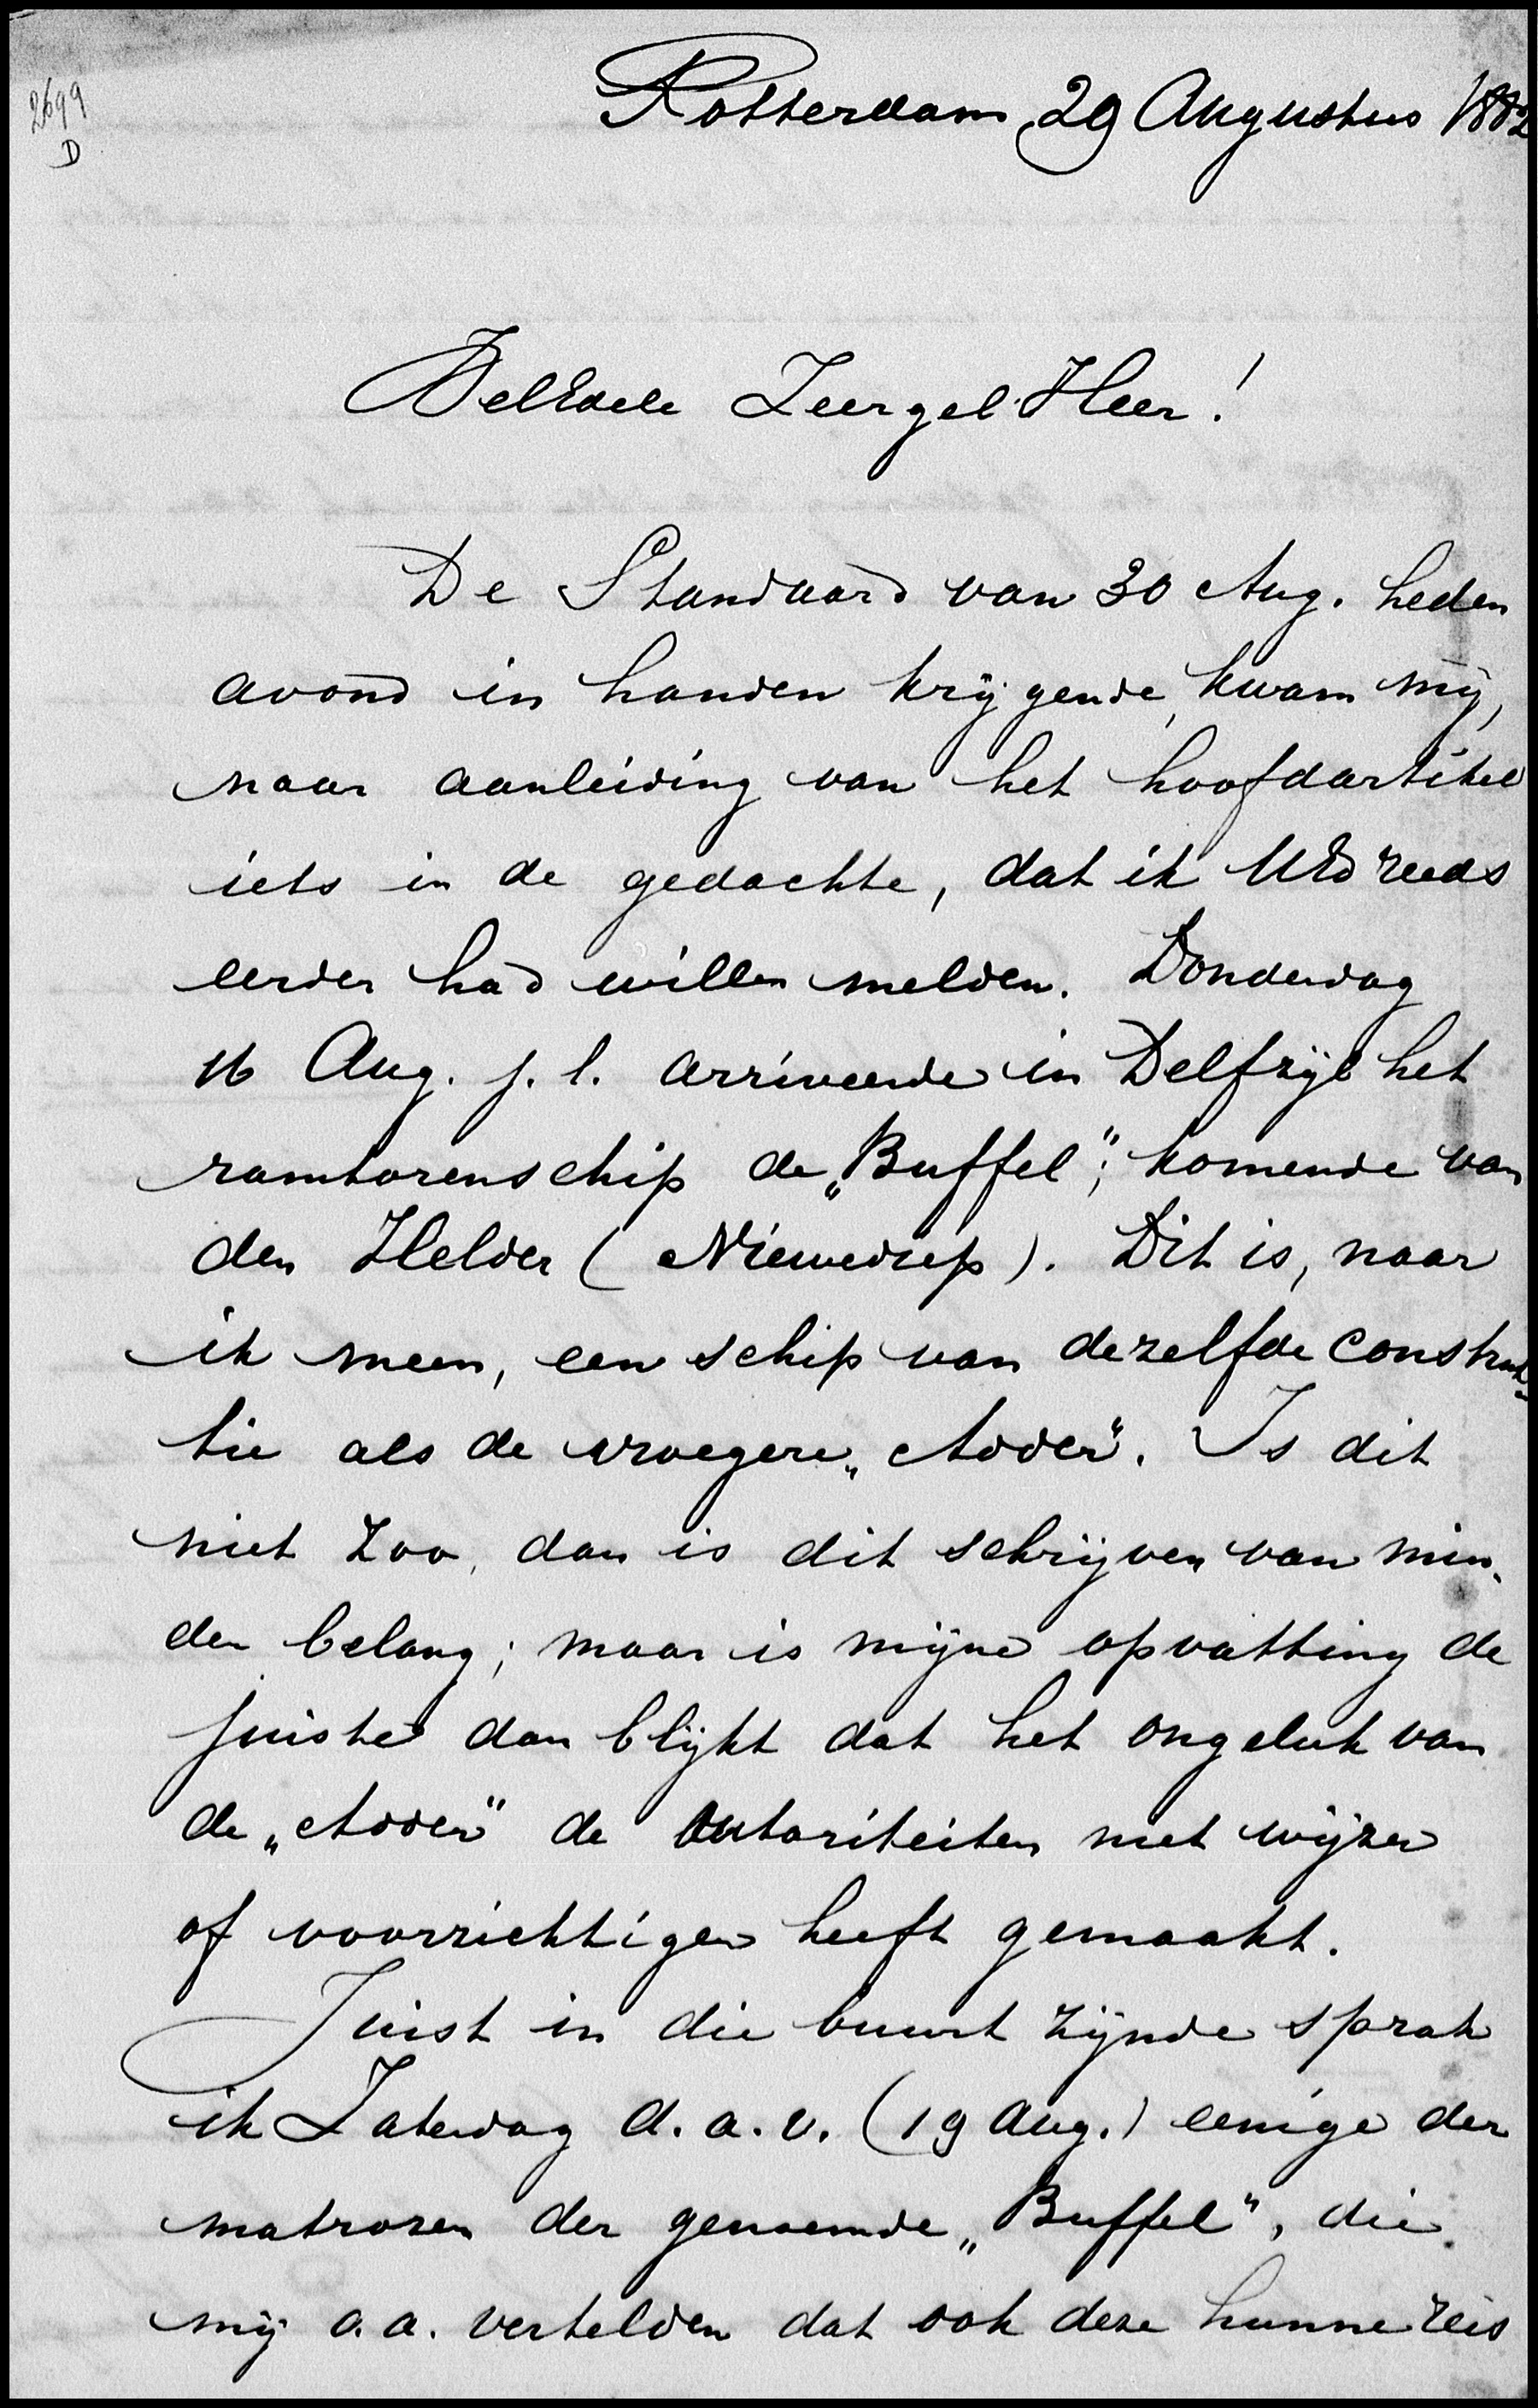 2699
D
Rotterdam, 29 Augustus 1882
WelEdele Zeergel. Heer!
De Standaard van 30 Aug. heden
avond in handen krijgende, kwam mij,
naar aanleiding van het hoofdartikel
iets in de gedachte, dat ik UEd reeds
eerder had willen melden. Donderdag
16 Aug. j.l. arriveerde in Delfzijl het
ramtorenschip de „Buffel”; komende van
den Helder (Nieuwediep). Dit is, naar
ik meen, een schip van dezelfde construk-
tie als de vroegere „Adder”. Is dit
niet zoo, dan is dit schrijven van min-
der belang; maar is mijne opvatting de
juiste dan blijkt dat het ongeluk van
de „Adder” de Autoriteiten niet wijzer
of voorzichtiger heeft gemaakt.
Juist in die buurt zijnde sprak
ik Zaterdag d.a.v. (19 Aug.) eenige der
matrozen der genoemde „Buffel”, die
mij o.a. vertelden dat ook deze hunne reis